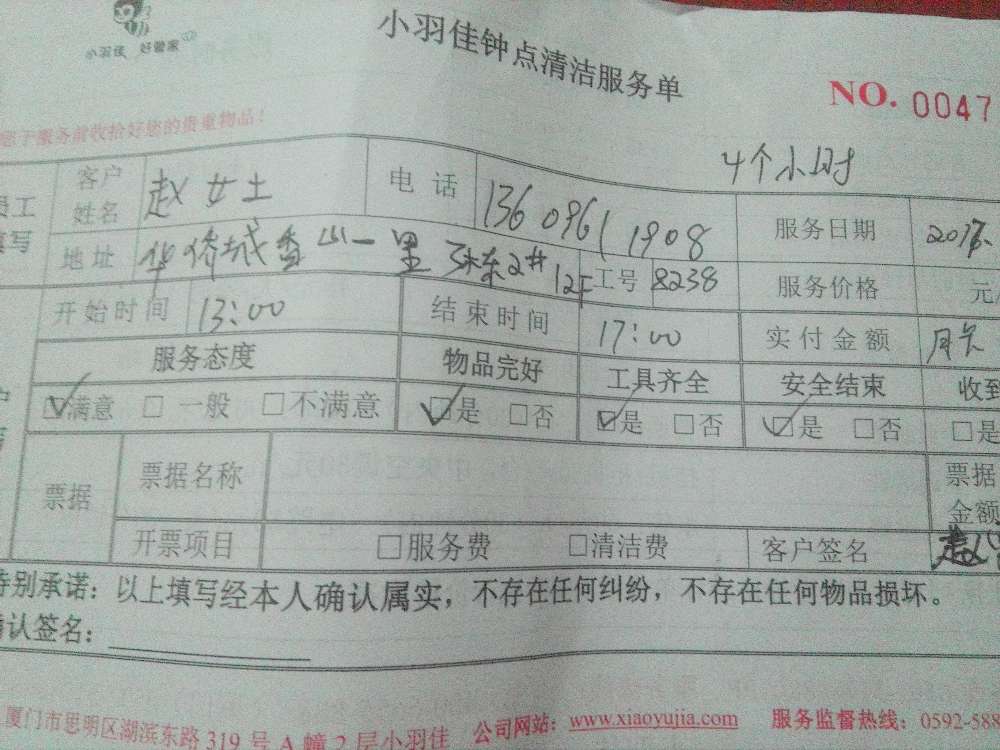 小羽佳 好管家
小羽佳钟点清洁服务单
NO. 0047
您于服务前收拾好您的贵重物品!
4个小时
员工
填写
客户姓名 赵女士 电话 136 0961 1908 服务日期
地址 华侨城香山一里 2# 12F 工号 8238 服务价格 元
开始时间 13:00 结束时间 17:00 实付金额 月卡
服务态度 物品完好 工具齐全 安全结束 收到
☑满意 □一般 □不满意 ☑是 □否 ☑是 □否 ☑是 □否 □是
票据 票据名称 票据金额
开票项目 □服务费 □清洁费 客户签名
特别承诺:以上填写经本人确认属实,不存在任何纠纷,不存在任何物品损坏。
确认签名:
厦门市思明区湖滨东路319号A幢2层小羽佳 公司网站:www.xiaoyujia.com 服务监督热线:0592-588